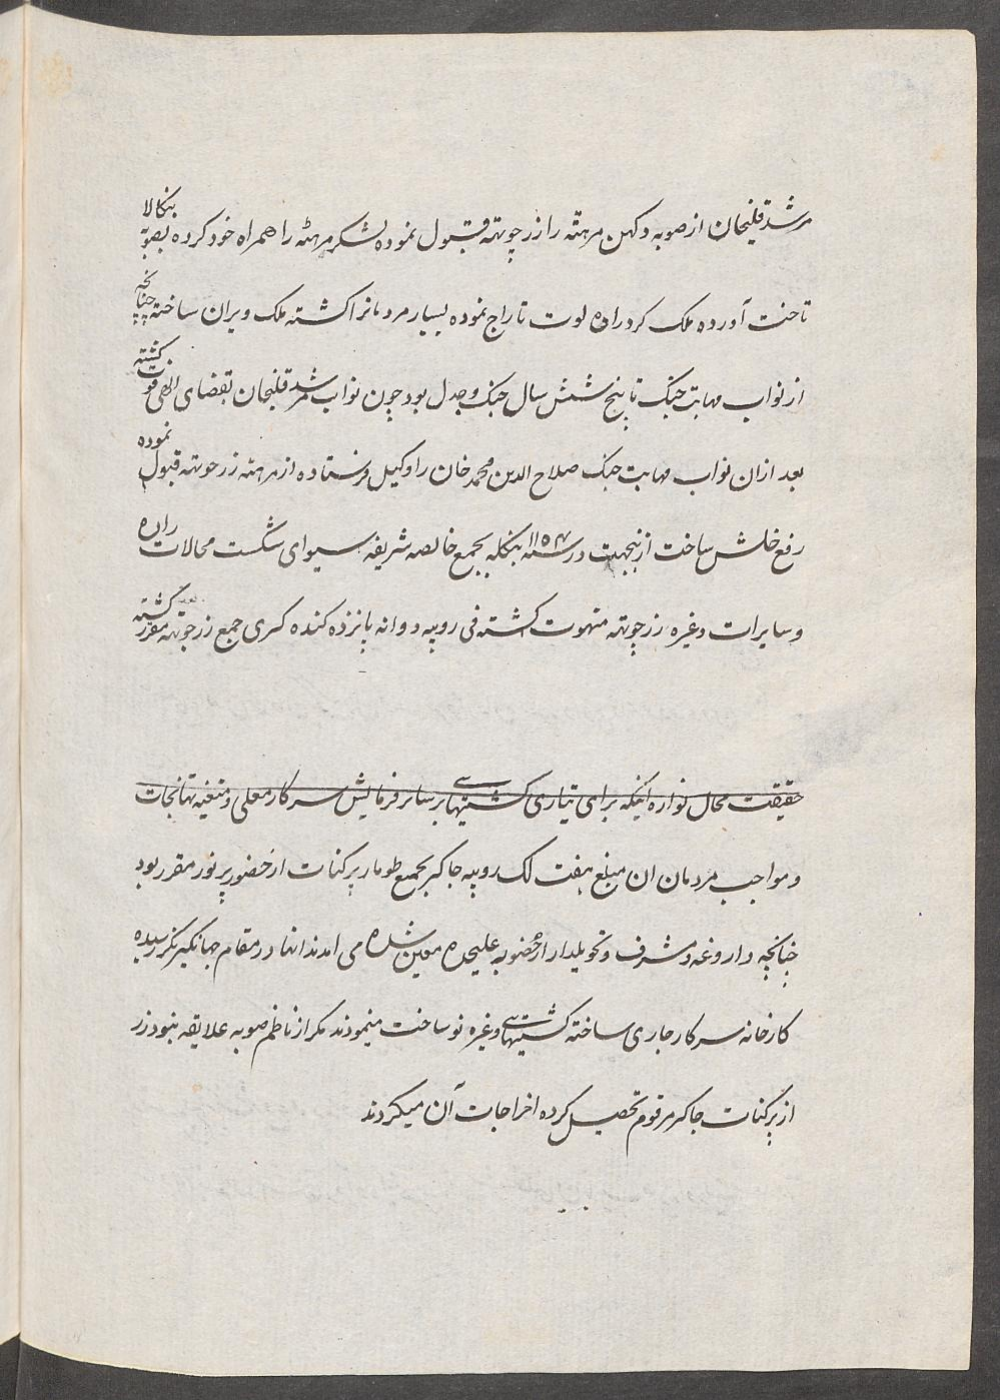 مرشد قلیخان از صوبه دکهن مرهته را زر چوتهه قبول نموده لشکر مرهته را همراه خود کرده بصوبه بنکالا
تاخت آورده ملک کرد راده لوت تاراج نموده بسیار مردمانرا کشته ملک ویران ساخته چنانچه
از نواب مهابت جنک تا پنج شش سال جنک و جدل بود چون نواب مرشد قلیخان بقضای الهی فوت کشته
بعد ازان نواب مهابت جنک صلاح الدین محمد خان را وکیل فرستاده از مرهته زر چوتهه قبول نموده
رفع خلش ساخت ازینجهت در سنه ۱۱۵۴ بنکله بجمع خالصه شریفه سیوای شکست محالات راده
و سایرات وغیره زر چوتهه متهوت کشته فی روپیه دو انه پانزده کنده کسری جمع زر چوتهه مقرر کشته
حقیقت محال نواره اینکه برای تیاری کشتیهای بر سایر فرمایش سرکار معلی و متعینه تهانجات
و مواجب مردمان ان مبلغ هفت لک روپیه جاکیر بجمع طومار پرکنات از حضور پر نور مقرر بود
چنانچه داروغه و مشرف و تحویلدار از حضور به علیحده معین شده می امدند انها در مقام جهانکیر نکر رسیده
کارخانه سرکار جاری ساخته کشتیهای وغیره نو ساخت مینمودند مکر از ناظم صوبه علایقه نبود زر
از پرکنات جاکیر مرقوم تحصیل کرده اخراجات آن میکردند